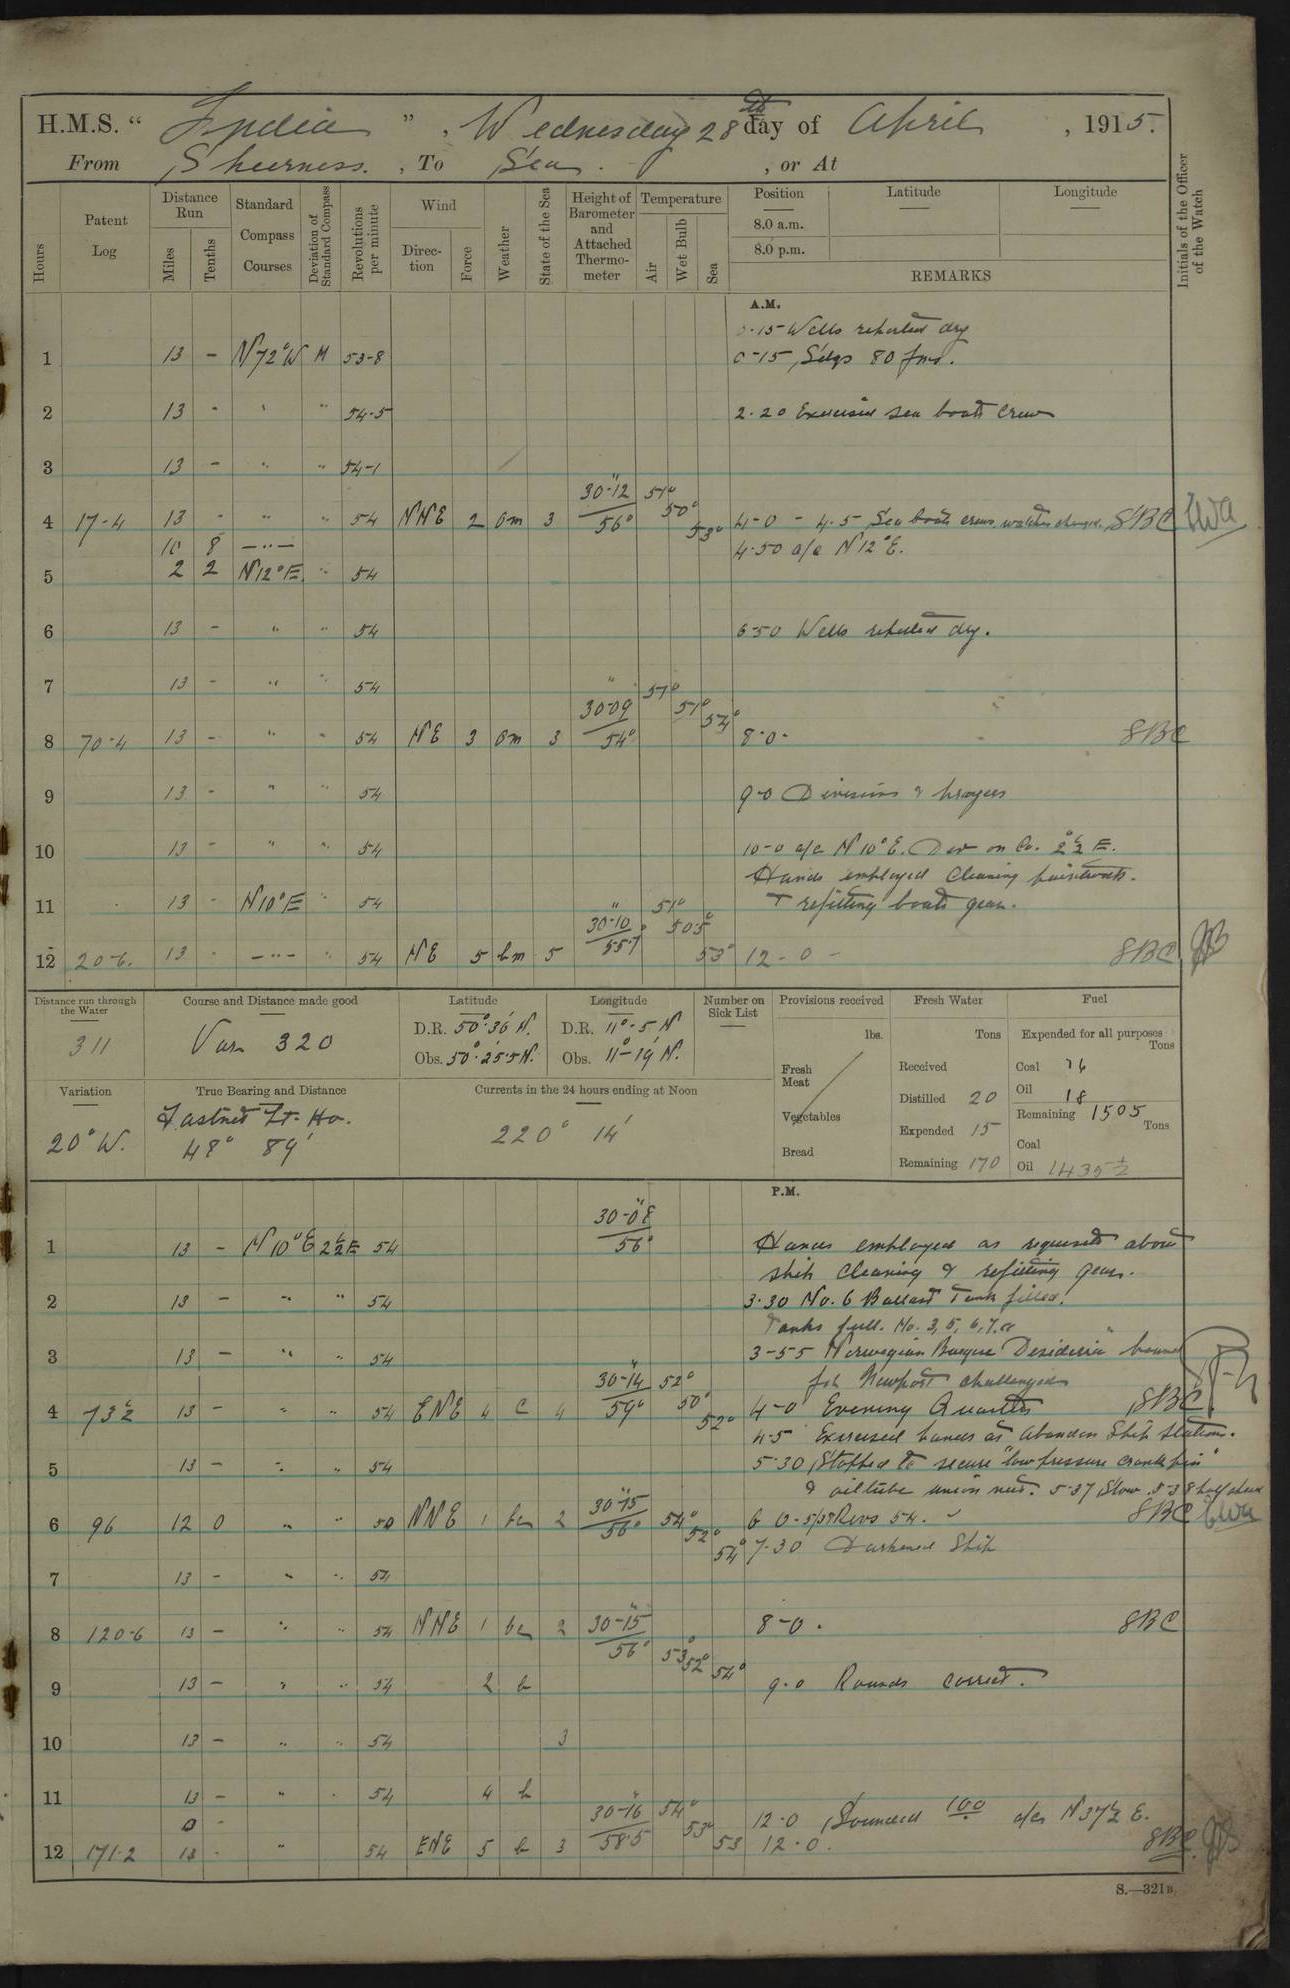 H.M.S. “ India ”, Wednesday 28th day of April, 1915.
From Sheerness. , To Sea. , or At
Hours
Patent Log
Distance Run
Miles
Tenths
Standard Compass Courses
Deviation of Standard Compass
Revolutions per minute
Wind
Direction
Force
Weather
State of the Sea
Height of Barometer and Attached Thermometer
Temperature
Air
Wet Bulb
Sea
Position
8.0 a.m.
8.0 p.m.
Latitude
Longitude
REMARKS
Initials of the Officer of the Watch
A.M.
0-15 Wells reported dry
1 13 - N72°W M 53-8 0-15, Sdgs 80 fms.
2 13 - " " 54-5 2-20 Exercised sea boats crew
3 13 - " " 54-1
30-12 51°
4 17-4 13 - " " 54 NNE 2 om 3 56° 50° 53° 4-0 - 4.5 Sea boats crews watches changed. SBC
10 8 -"- 4.50 a/c N12°E.
5 2 2 N12°E " 54
6 13 - " " 54 6-50 Wells reported dry.
7 13 - " " 54 51°
30-09 51° 54°
8 70-4 13 - " " 54 NE 3 om 3 54° 8.0. SBC
9 13 - " " 54 9-0 Divisions & prayers
10 13 - " " 54 10-0 a/c N10°E. Dev on Co. 2°½ E.
Hands employed cleaning paintwork.
11 13 - N10°E " 54 51° & refitting boats gear.
30-10 50.5°
12 20-6. 13 - -"- " 54 NE 5 bm 5 55.7° 53° 12-0- SBC
Distance run through the Water
311
Course and Distance made good
Var 320
Latitude
D.R. 50°.36' N.
Obs. 50°.25.5 N.
Longitude
D.R. 11°-5 N
Obs. 11°-19' N.
Number on Sick List
Provisions received
lbs.
Fresh Meat
Vegetables
Bread
Fresh Water
Tons
Received
Distilled 20
Expended 15
Remaining 170
Fuel
Expended for all purposes
Tons
Coal 76
Oil 18
Remaining 1505
Tons
Coal
Oil 1435½
Variation
20° W.
True Bearing and Distance
Fastnet Lt. Ho.
48° 89'
Currents in the 24 hours ending at Noon
220° 14'
P.M.
30-08
1 13 - N10°E 2½E 54 56° Hands employed as requisite about
ship cleaning & refitting gear.
2 13 - " " 54 3.30 No. 6 Ballast Tank filled.
Tanks full. No. 3, 5, 6, 7.
3 13 - " " 54 3-55 Norwegian Barque "Desideria" bound
30-14 52° for Newport challenged
4 73½ 13 - " " 54 ENE 4 c 4 59° 50° 52° 4-0 Evening Quarters SBC
4.5 Exercised hands at Abandon Ship stations.
5 13 - " " 54 5.30 Stopped to secure "low pressure crank pin"
30-15 & oiltube union nut. 5.37 Slow. 5.38 half ahead
6 96 12 0 " " 50 NNE 1 bc 2 56° 54° 52° 6 0 Revs 54. SBC
54° 7.30 Darkened Ship
7 13 - " " 54
8 120-6 13 - " " 54 NNE 1 bc 2 30-15 8-0. SBC
56° 53° 52° 54°
9 13 - " " 54 2 b 9.0 Rounds correct.
10 13 - " " 54 3
11 13 - " " 54 4 b
0 - 30-16 54° 53° 12.0 Sounded 100 a/c N37½ E.
12 171.2 13 - " 54 ENE 5 b 3 58.5 53 12.0. SBC
S.—321B.